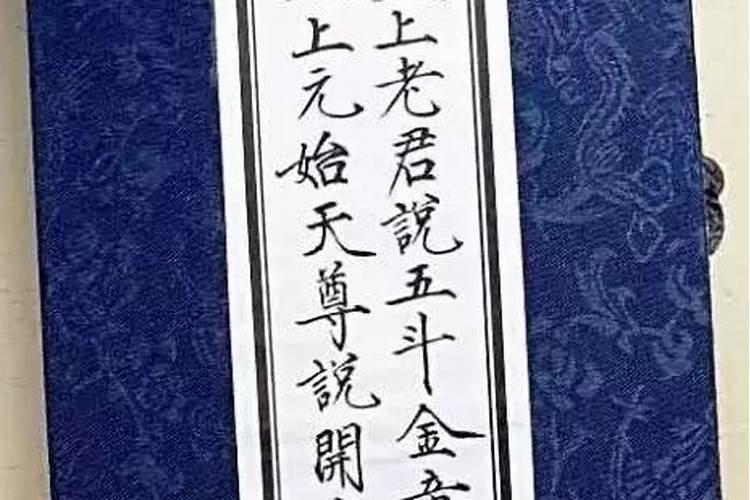 上老君說五斗金章
上元始天尊說開